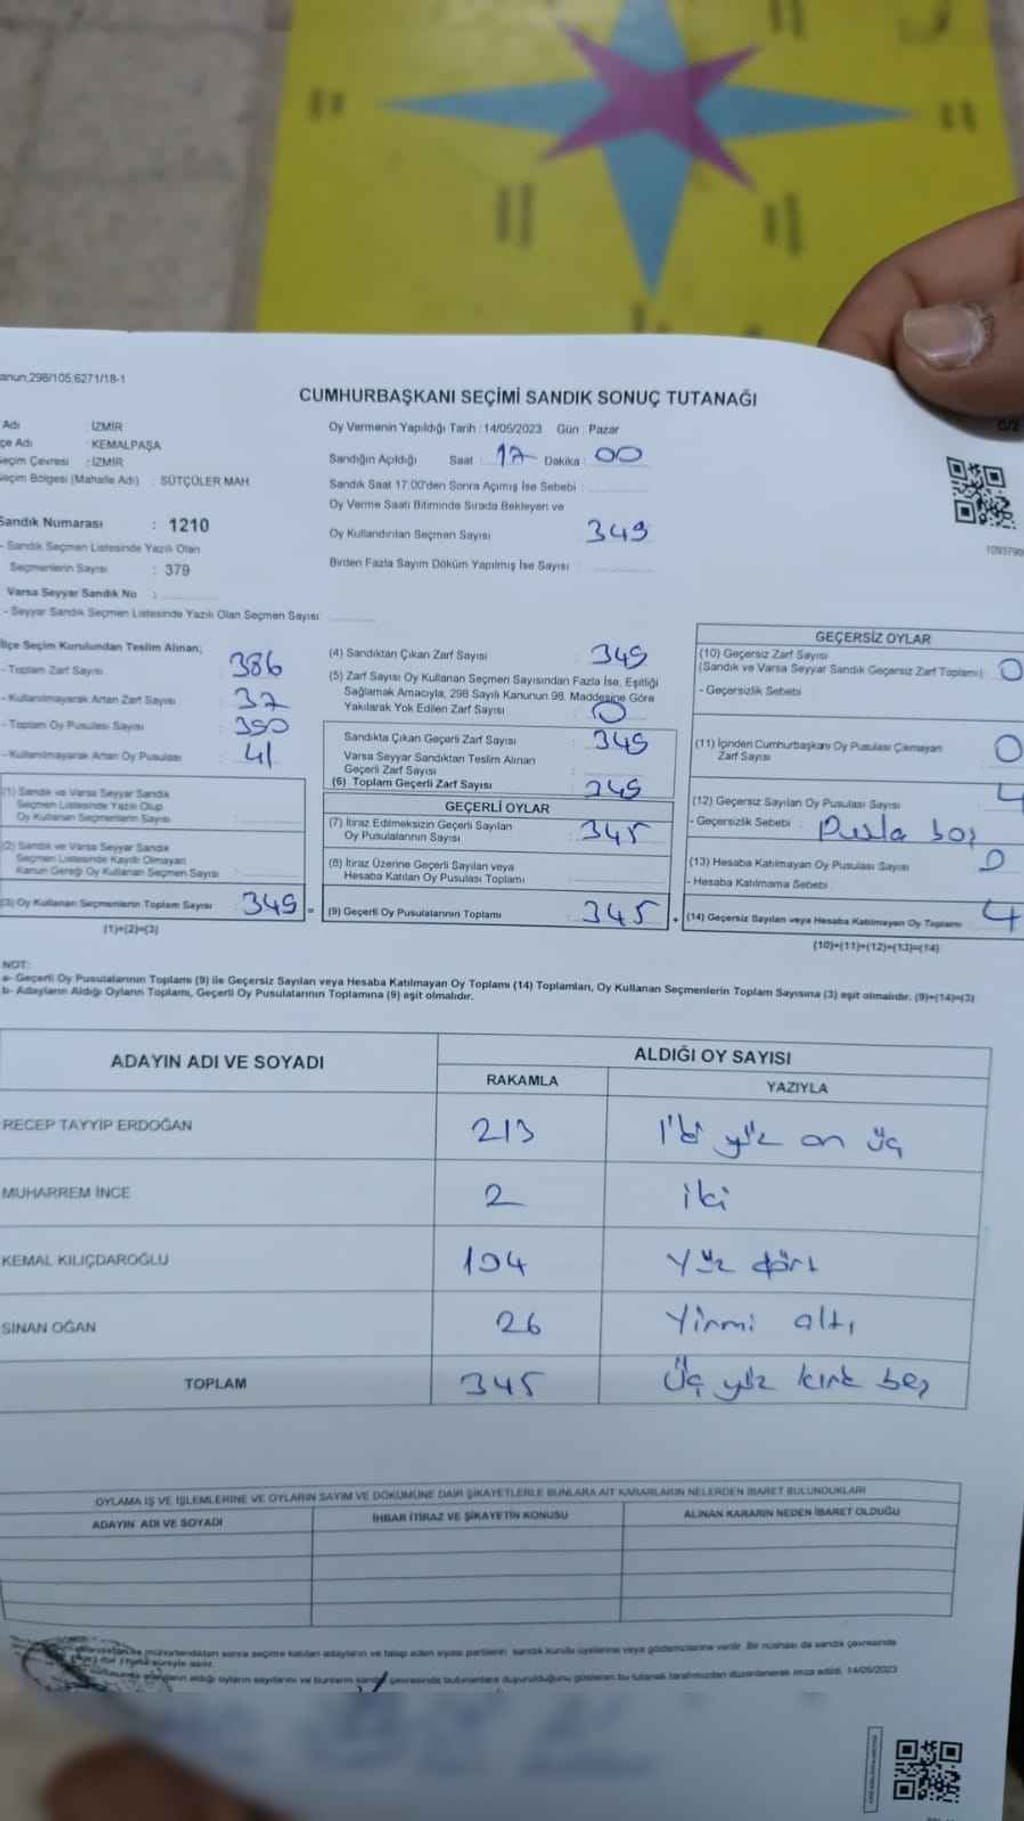 anun;298/105;6271/18-1
CUMHURBAŞKANI SEÇİMİ SANDIK SONUÇ TUTANAĞI
Adı : İZMİR
çe Adı : KEMALPAŞA
eçim Çevresi : İZMİR
eçim Bölgesi (Mahalle Adı) : SÜTÇÜLER MAH
Sandık Numarası : 1210
- Sandık Seçmen Listesinde Yazılı Olan
Seçmenlerin Sayısı : 379
Varsa Seyyar Sandık No :
- Seyyar Sandık Seçmen Listesinde Yazılı Olan Seçmen Sayısı
Oy Vermenin Yapıldığı Tarih : 14/05/2023 Gün : Pazar
Sandığın Açıldığı Saat : 17 Dakika : 00
Sandık Saat 17:00'den Sonra Açımış İse Sebebi :
Oy Verme Saati Bitiminde Sırada Bekleyen ve
Oy Kullandırılan Seçmen Sayısı 349
Birden Fazla Sayım Döküm Yapılmış İse Sayısı :
İlçe Seçim Kurulundan Teslim Alınan;
- Toplam Zarf Sayısı 386
- Kullanılmayarak Artan Zarf Sayısı 37
- Toplam Oy Pusulası Sayısı 390
- Kullanılmayarak Artan Oy Pusulası 41
(1) Sandık ve Varsa Seyyar Sandık
Seçmen Listesinde Yazılı Olup
Oy Kullanan Seçmenlerin Sayısı
(2) Sandık ve Varsa Seyyar Sandık
Seçmen Listesinde Kayıtlı Olmayan
Kanun Gereği Oy Kullanan Seçmen Sayısı
(3) Oy Kullanan Seçmenlerin Toplam Sayısı 349 =
(1)+(2)=(3)
(4) Sandıktan Çıkan Zarf Sayısı 349
(5) Zarf Sayısı Oy Kullanan Seçmen Sayısından Fazla İse, Eşitliği
Sağlamak Amacıyla, 298 Sayılı Kanunun 98. Maddesine Göre
Yakılarak Yok Edilen Zarf Sayısı 0
Sandıkta Çıkan Geçerli Zarf Sayısı : 349
Varsa Seyyar Sandıktan Teslim Alınan
Geçerli Zarf Sayısı :
(6) Toplam Geçerli Zarf Sayısı 349
GEÇERLİ OYLAR
(7) İtiraz Edilmeksizin Geçerli Sayılan
Oy Pusulalarının Sayısı : 345
(8) İtiraz Üzerine Geçerli Sayılan veya
Hesaba Katılan Oy Pusulası Toplamı
(9) Geçerli Oy Pusulalarının Toplamı 345 +
GEÇERSİZ OYLAR
(10) Geçersiz Zarf Sayısı
(Sandık ve Varsa Seyyar Sandık Geçersiz Zarf Toplamı) : 0
- Geçersizlik Sebebi
(11) İçinden Cumhurbaşkanı Oy Pusulası Çıkmayan
Zarf Sayısı : 0
(12) Geçersiz Sayılan Oy Pusulası Sayısı 4
- Geçersizlik Sebebi : Pusla boş
(13) Hesaba Katılmayan Oy Pusulası Sayısı 0
- Hesaba Katılmama Sebebi
(14) Geçersiz Sayılan veya Hesaba Katılmayan Oy Toplamı 4
(10)+(11)+(12)+(13)=(14)
NOT:
a- Geçerli Oy Pusulalarının Toplamı (9) ile Geçersiz Sayılan veya Hesaba Katılmayan Oy Toplamı (14) Toplamları, Oy Kullanan Seçmenlerin Toplam Sayısına (3) eşit olmalıdır. (9)+(14)=(3)
b- Adayların Aldığı Oyların Toplamı, Geçerli Oy Pusulalarının Toplamına (9) eşit olmalıdır.
ADAYIN ADI VE SOYADI ALDIĞI OY SAYISI
RAKAMLA YAZIYLA
RECEP TAYYİP ERDOĞAN 213 iki yüz on üç
MUHARREM İNCE 2 iki
KEMAL KILIÇDAROĞLU 104 Yüz dört
SİNAN OĞAN 26 Yirmi altı
TOPLAM 345 Üç yüz kırk beş
OYLAMA İŞ VE İŞLEMLERİNE VE OYLARIN SAYIM VE DÖKÜMÜNE DAİR ŞİKAYETLERLE BUNLARA AİT KARARLARIN NELERDEN İBARET BULUNDUKLARI
ADAYIN ADI VE SOYADI İHBAR İTİRAZ VE ŞİKAYETİN KONUSU ALINAN KARARIN NEDEN İBARET OLDUĞU
mühürlendikten sonra seçime katılan adayların ve talep eden siyasi partilerin sandık kurulu üyelerine veya gözlemcilerine verilir. Bir nüshası da sandık çevresinde
aldığı oyların sayılarını ve bunların sandık çevresinde bulunanlara duyurulduğunu gösteren bu tutanak tarafımızdan düzenlenerek imza edildi. 14/05/2023